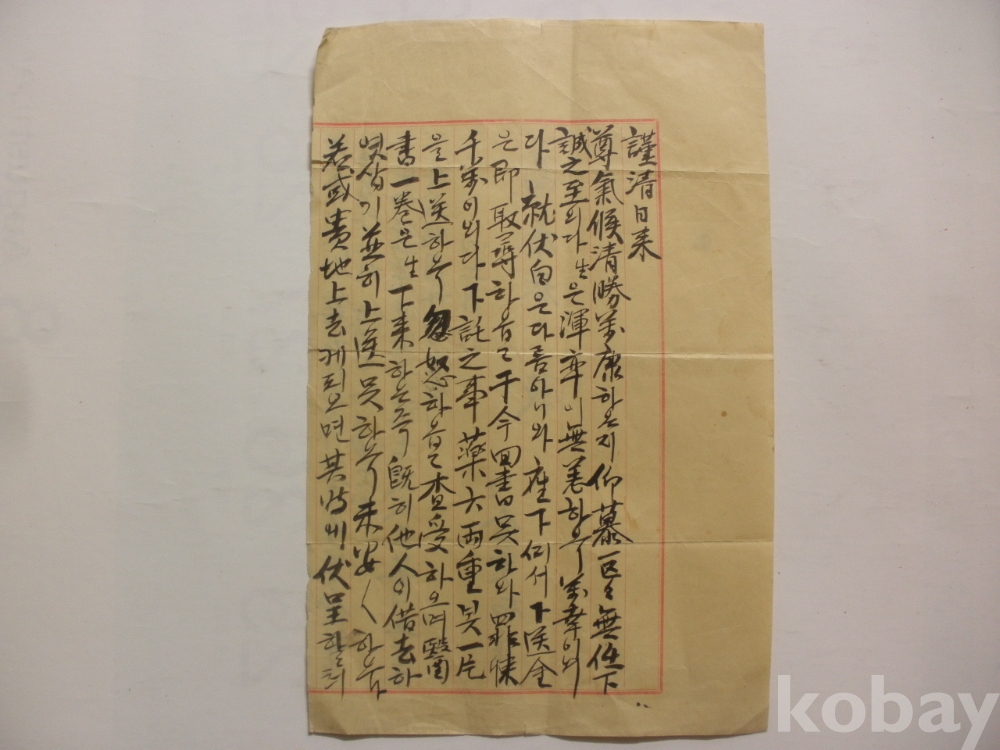 謹淸日来
尊氣候淸勝萬康하온지 仰慕區區 無任下
誠之至외다 生은 渾率이 無恙하오니 萬幸이외
다 就伏白은 다름아니와 座下게서 下送金
은 即取尋하옵고 于今 回書日 못하와 罪悚
千萬이외다 下託之事 藥六兩重 못 一片
을 上送하오 忽恕하옵고 查受하오며 醫
書一卷은 生下来하는즉 旣히 他人이 借去하
엿삽기 並히 上送 못하오 未安〱 하옵
若或貴地上去케되오면 其時에 伏呈할터
kobay